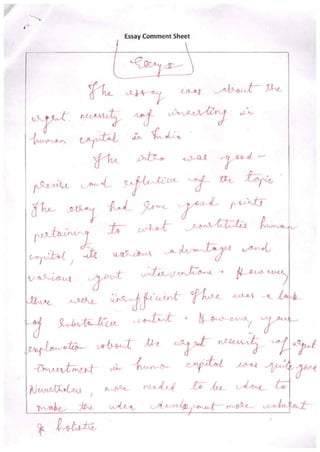 Essay Comment Sheet
Essay
The essay was about the
urgent necessity of investing in
human capital in India
The intro was good -
precise and reflective of the topic
The essay had some good points
pertaining to what constitutes human
capital, its various advantages and
various govt interventions. However,
there were insufficient There was a lack
of substantive content. However, your
explanation about the urgent necessity of urgent
investment in human capital was quite good
Nevertheless, more needed to be done to
make the idea development more coherent
& holistic